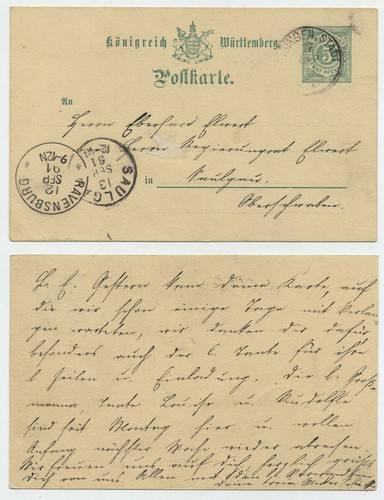 Königreich Württemberg.
Postkarte.
An
Herrn Eberhard Elwert
Herrn Regierungsrat Elwert
in Saulgau.
Oberschwaben.
STADT
5
SAULGAU
13
SEP
91
RAVENSBURG
12
SEP
91
9-12N
L. E. Gestern kam deine Karte, auf
die wir schon einige Tage mit Verlan-
gen warteten, wir danken dir dafür
besonders auch der l. Tante für ihre
l. Zeilen u. Einladung. Die l. Groß-
mama, Tante Louise u. Rudolf
sind seit Montag hier u. wollen
Anfang nächster Woche wieder abreisen.
Wir freuen uns auf dich herzlich grüßt
dich von uns Allen